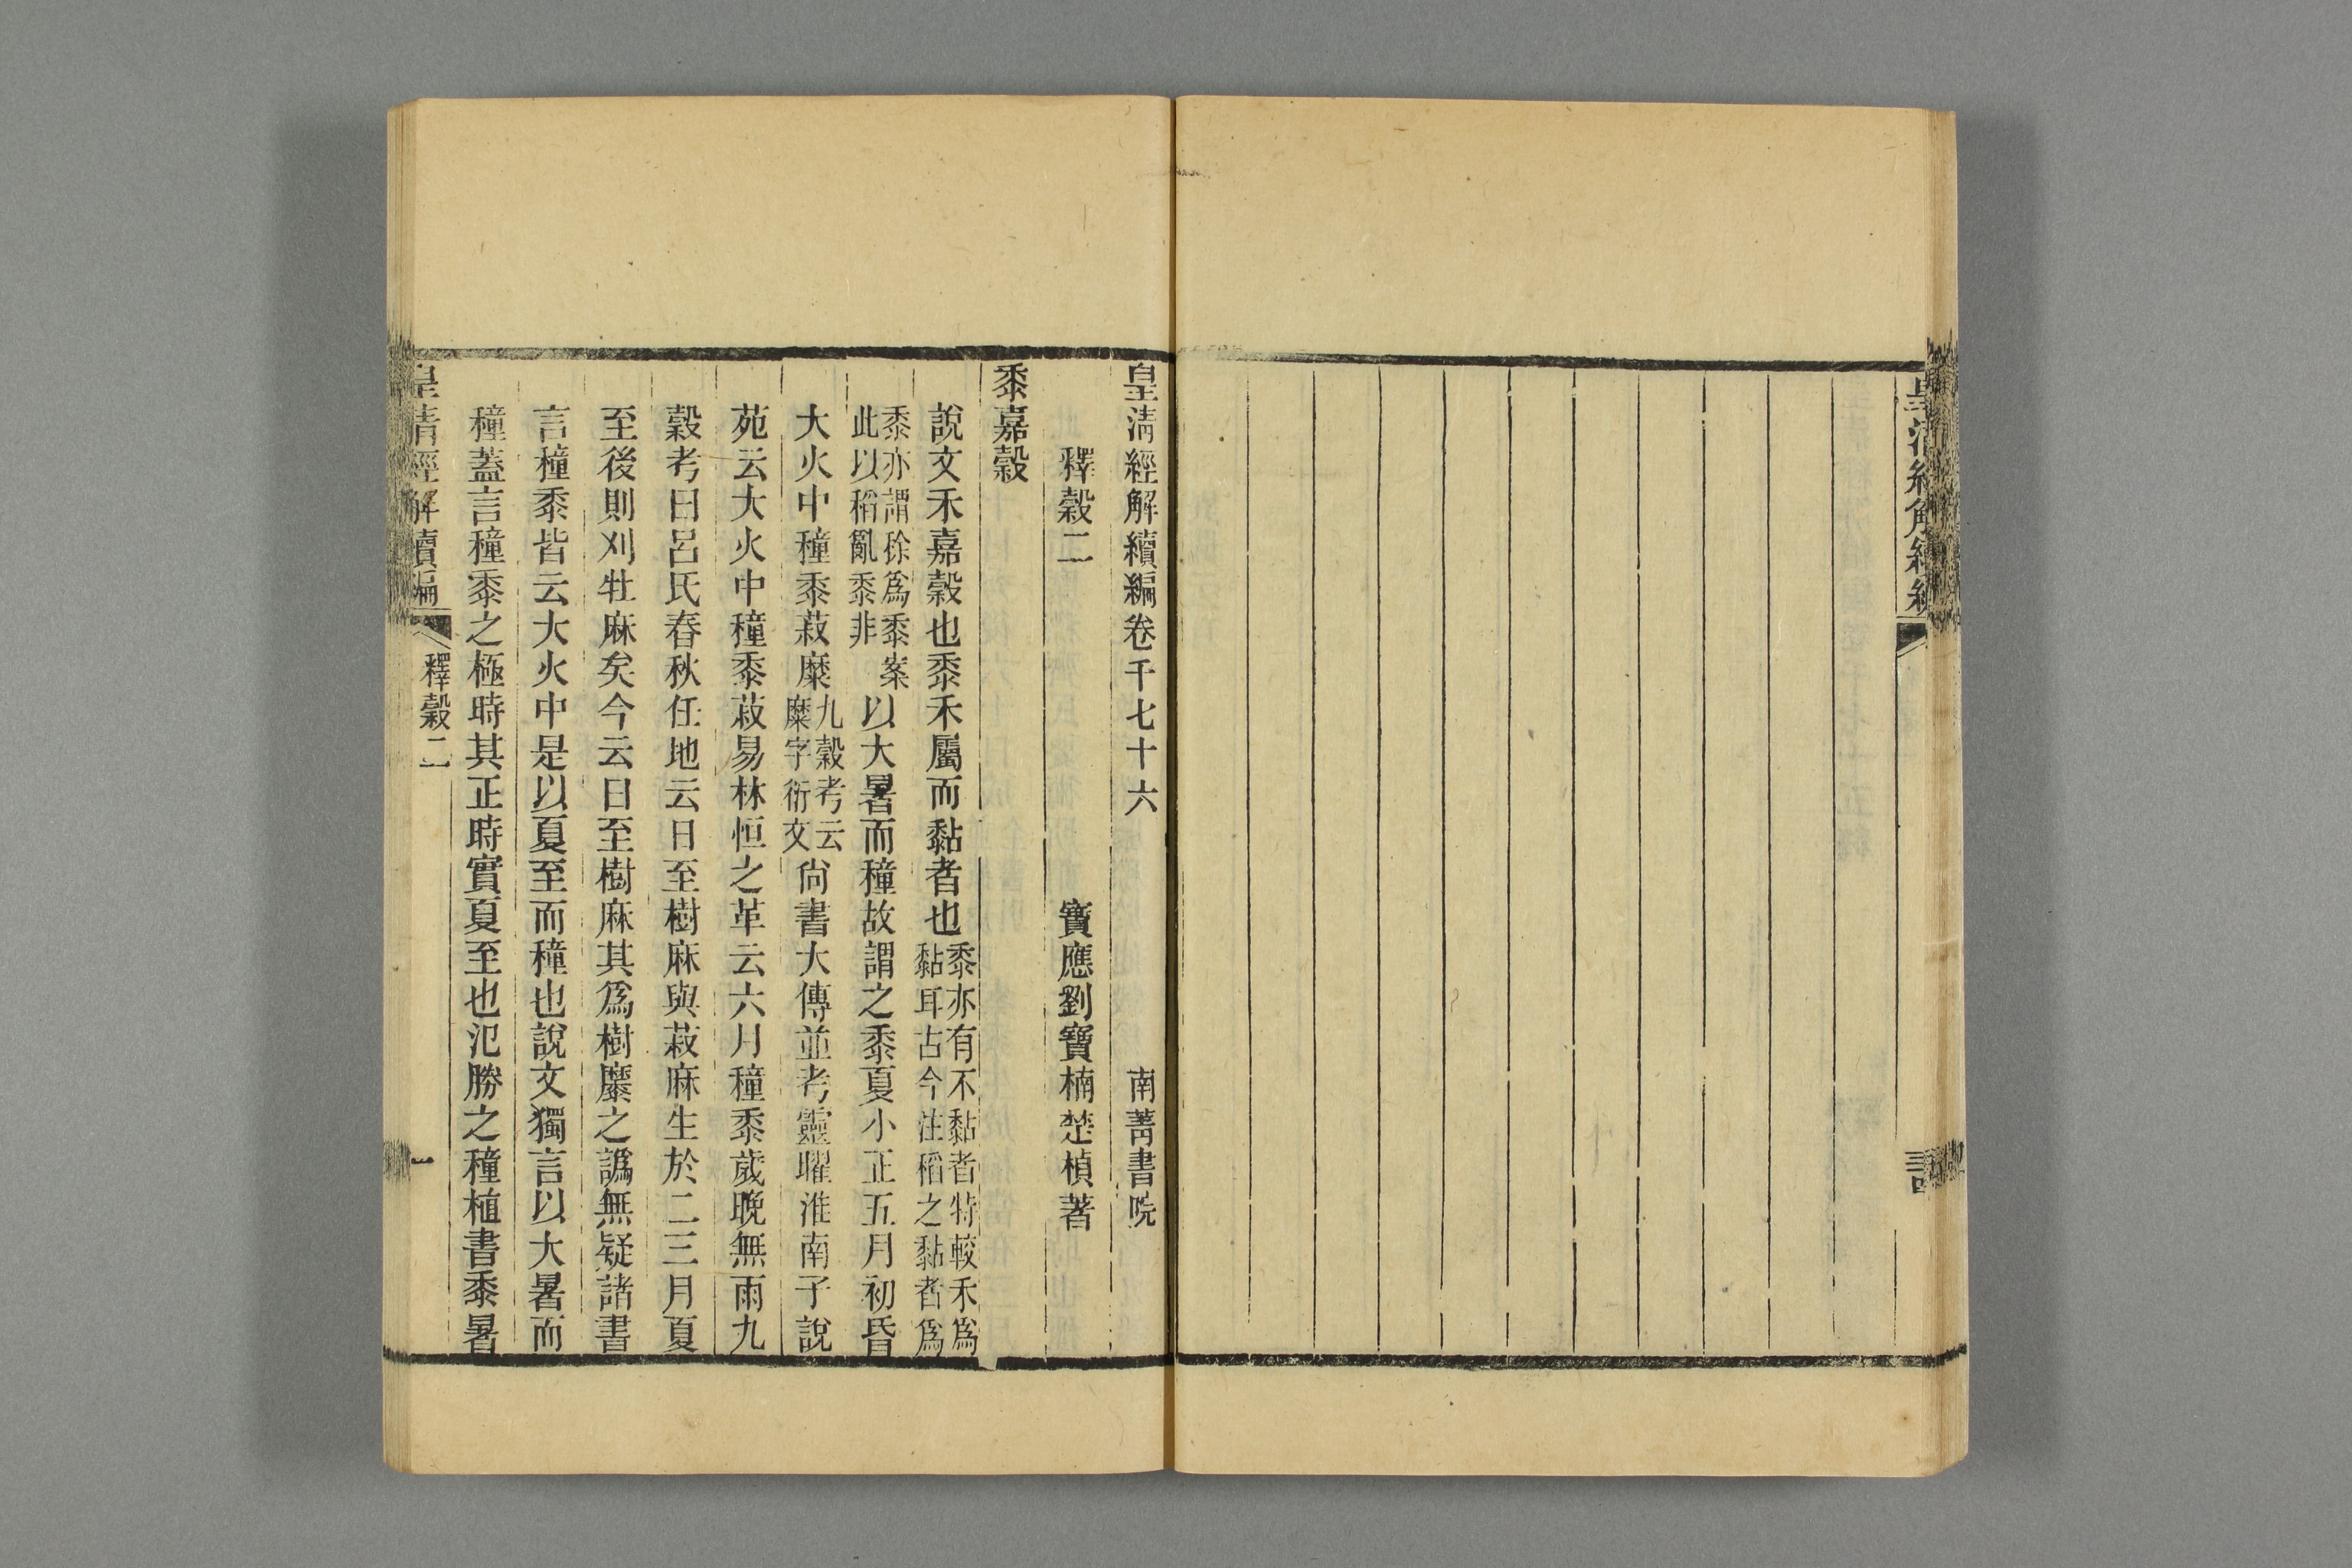 皇清經解續編卷千七十六 南菁書院
釋穀二 寶應劉寶楠楚楨著
黍嘉穀
說文禾嘉穀也黍禾屬而黏者也黍亦有不黏者特較禾爲黏耳古今注稻之黏者爲
黍亦謂稌爲黍案此以稻亂黍非以大暑而穜故謂之黍夏小正五月初昏
大火中穜黍菽糜九穀考云糜字衍文尙書大傳並考靈曜淮南子說
苑云大火中穜黍菽易林恒之革云六月穜黍歲晚無雨九
穀考曰呂氏春秋任地云日至樹麻與菽麻生於二三月夏
至後則刈牡麻矣今云日至樹麻其爲樹麋之譌無疑諸書
言穜黍皆云大火中是以夏至而穜也說文獨言以大暑而
穜蓋言穜黍之極時其正時實夏至也氾勝之穜植書黍暑
皇清經解續編 釋穀二 一